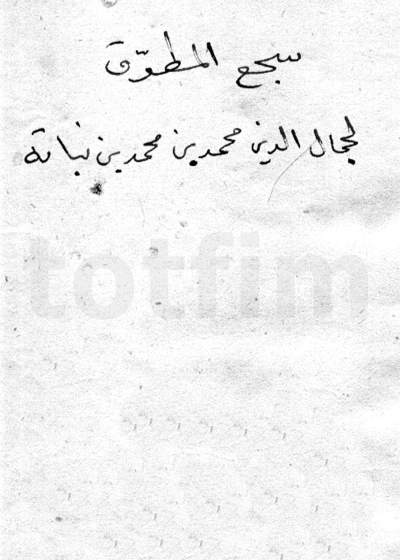 سجع المطوّق
لجمال الدين محمد بن محمد بن نباتة
totfim